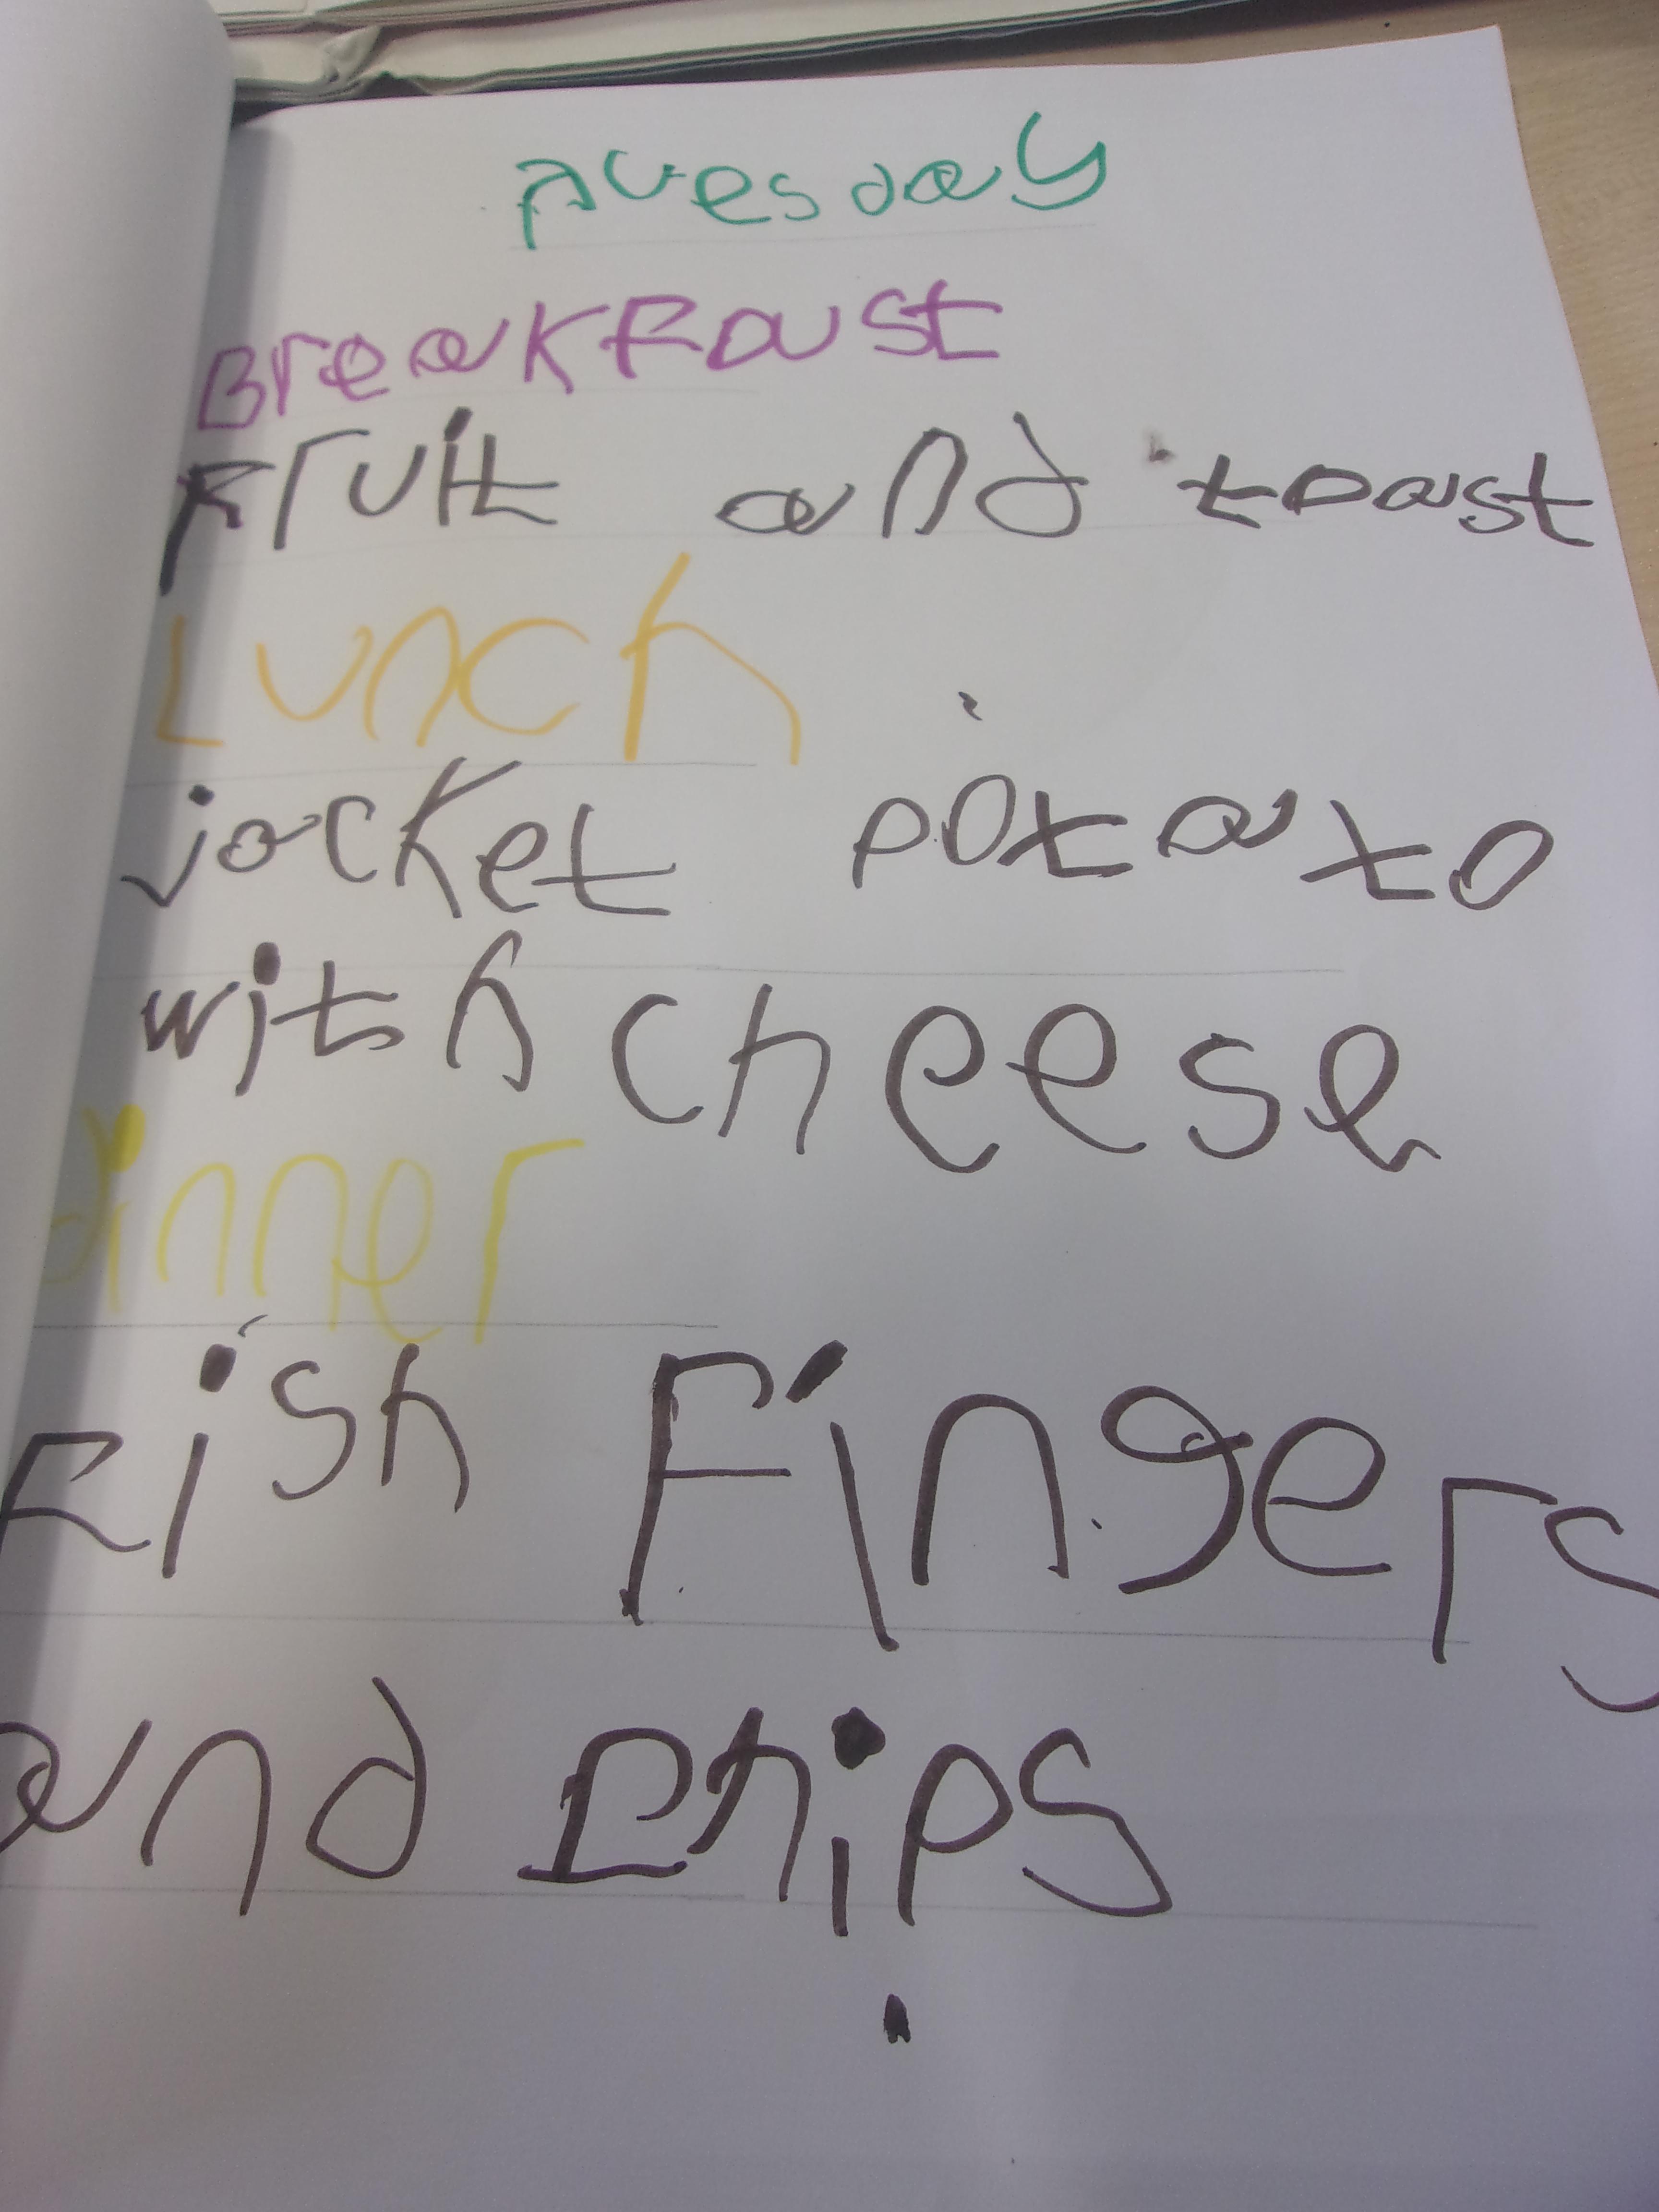 Tuesday
BreakFast
Fruit and toast
Lunch
jacket potato
with cheese
dinner
Fish Fingers
and chips